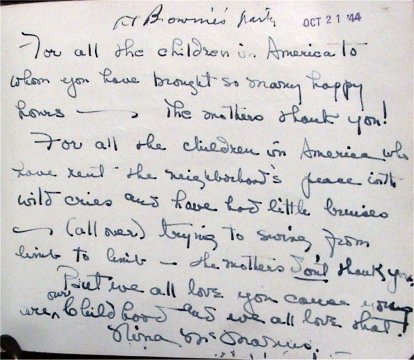 At Brownie's party OCT 21 '44
For all the children in America to
whom you have brought so many happy
hours — The mothers thank you!
For all the children in America who
have rent the neighborhood's peace with
wild cries and have had little bruises
— (all over) trying to swing from
limb to limb — the mothers don't thank you.
But we all love you cause you
were our Childhood and we all love that!
Nina